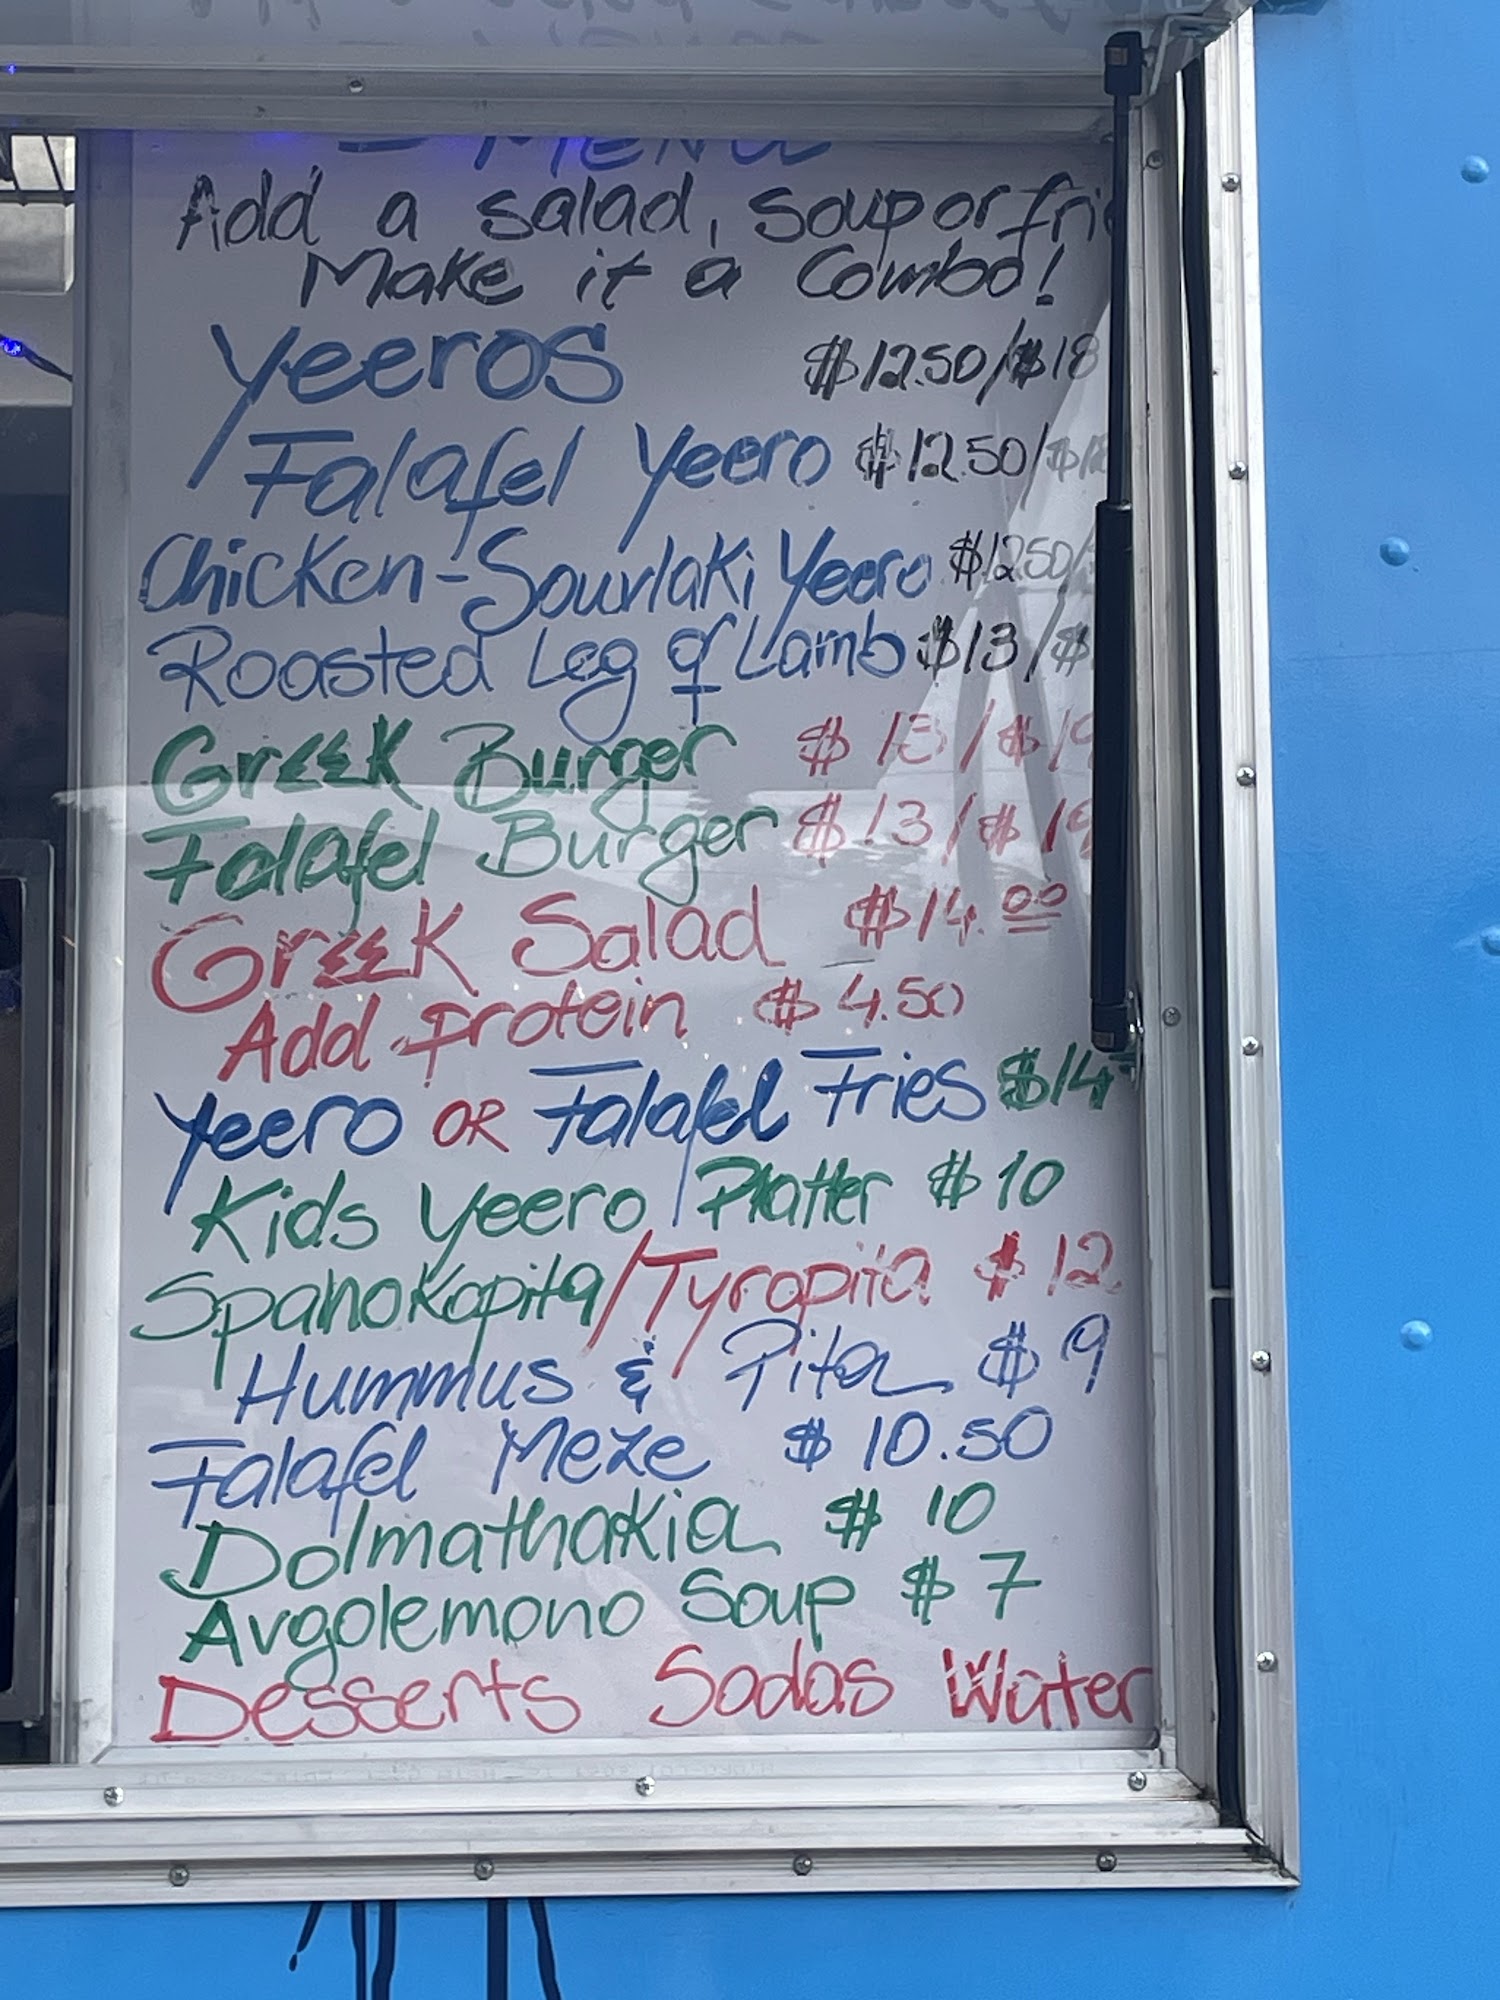 - MENU
Add a salad, soup or fri
Make it a Combo!
Yeeros $12.50/$18
Falafel Yeero $12.50/$18
Chicken-Souvlaki Yeero $12.50/
Roasted Leg of Lamb $13/$
Greek Burger $13/$19
Falafel Burger $13/$19
Greek Salad $14.00
Add protein $4.50
Yeero OR Falafel Fries $14
Kids Yeero Platter $10
Spanokopita/Tyropita $12
Hummus & Pita $9
Falafel Meze $10.50
Dolmathakia $10
Avgolemono Soup $7
Desserts Sodas Water